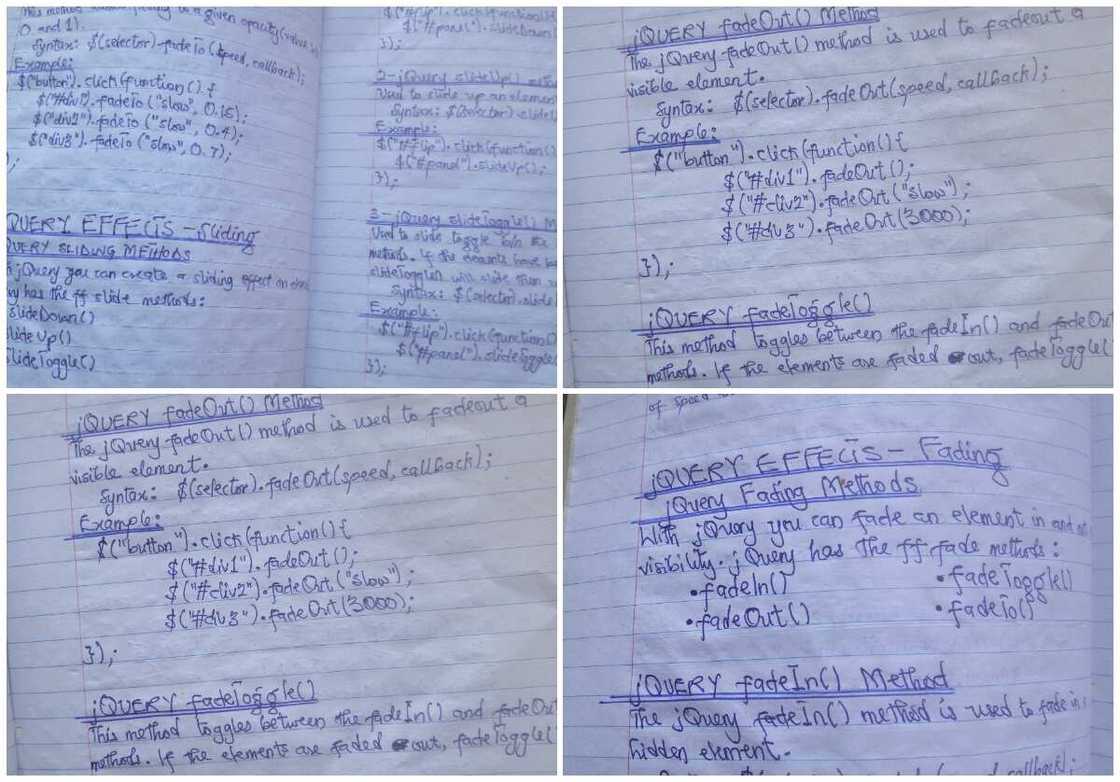 This method
to a given opacity(value
0 and 1).
Syntax: $(selector).fadeTo(speed, callback);
Example:
$("button").click(function(){
$("#div1").fadeTo("slow", 0.15);
$("div2").fadeTo("slow", 0.4);
$("div3").fadeTo("slow", 0.7);
);
QUERY EFFECTS - Sliding
QUERY SLIDING METHODS
jQuery you can create a sliding effect on
ry has the ff slide methods:
slideDown()
slide Up()
slideToggle()
$("#flip").click(function()
$("#panel").slideDown(
});
2-jQuery slideUp()
Used to slide up an elemen
Syntax: $(selector).slide
Example:
$("#flip").click(function()
$("#panel").slideUp();
});
3-jQuery slideToggle() M
Used to slide toggle b/n the
methods. If the elements have
slideToggle() will slide them
Syntax: $(selector).slide
Example:
$("#flip").click(function()
$("#panel").slideToggle
});
jQUERY fadeOut() Method
The jQuery fadeOut() method is used to fadeout a
visible element.
Syntax: $(selector).fadeOut(speed, callback);
Example:
$("button").click(function(){
$("#div1").fadeOut();
$("#div2").fadeOut("slow");
$("#div3").fadeOut(3000);
});
jQUERY fadeToggle()
This method toggles between the fadeIn() and fadeOut
methods. If the elements are faded out, fadeToggle(
jQUERY fadeOut() Method
The jQuery fadeOut() method is used to fadeout a
visible element.
Syntax: $(selector).fadeOut(speed, callback);
Example:
$("button").click(function(){
$("#div1").fadeOut();
$("#div2").fadeOut("slow");
$("#div3").fadeOut(3000);
});
jQUERY fadeToggle()
This method toggles between the fadeIn() and fadeOut
methods. If the elements are faded out, fadeToggle(
of speed
jQUERY EFFECTS - Fading
jQuery Fading Methods
With jQuery you can fade an element in and
visibility. jQuery has the ff fade methods:
•fadeIn() •fadeToggle()
•fadeOut() •fadeTo()
jQUERY fadeIn() Method
The jQuery fadeIn() method is used to fade in
hidden element.
callback);